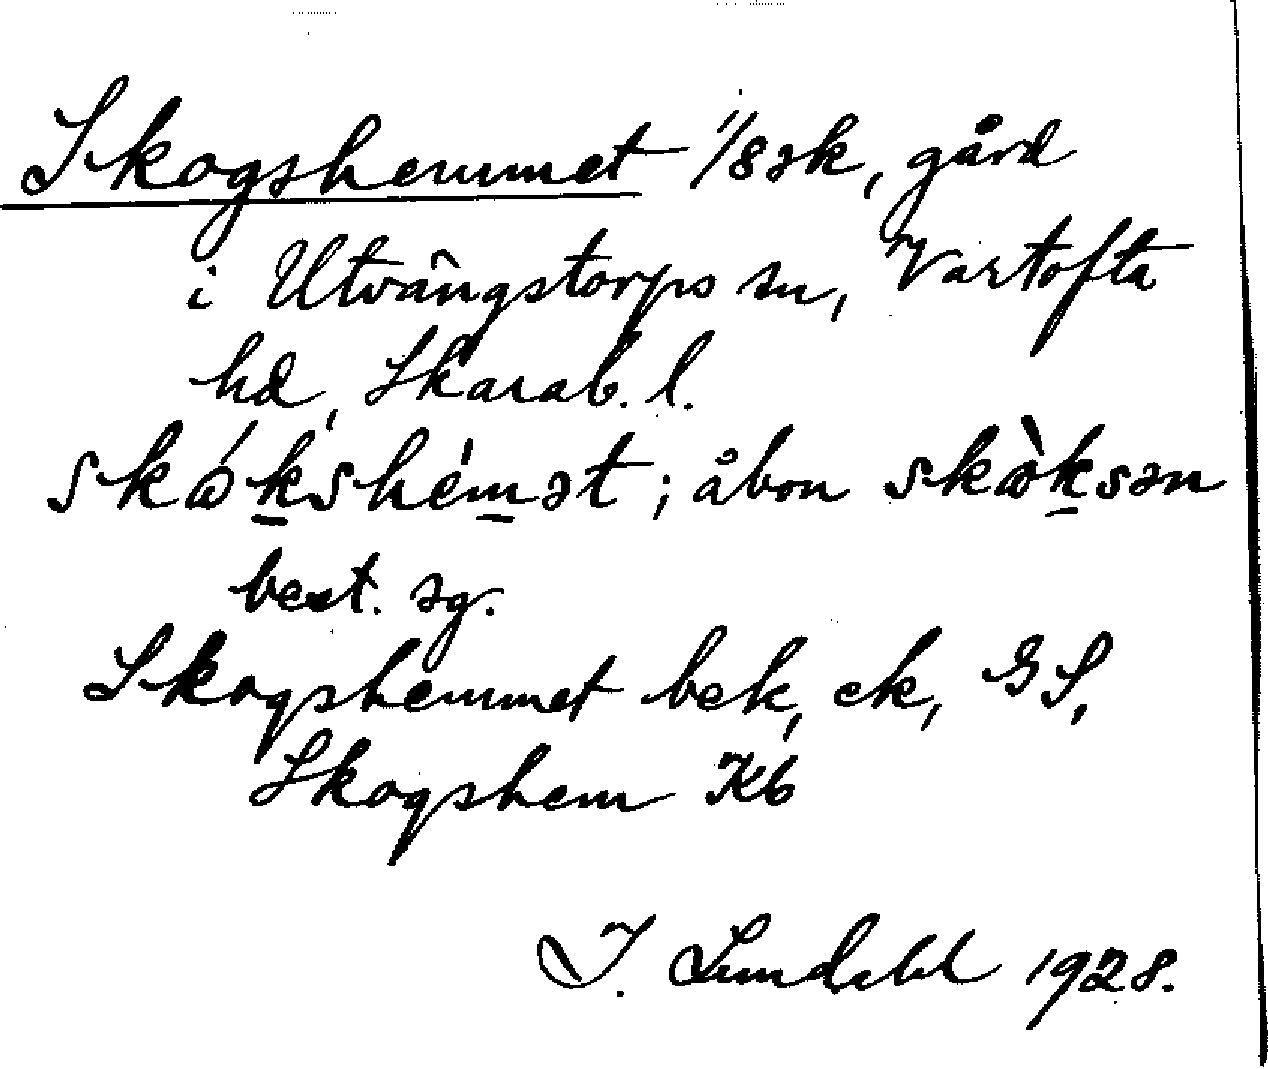 Skogshemmet 1/8 sk, gård
i Utvängstorps sn, Vartofta
hd, Skarab. l.
skɷ́kshémət; åbon skɷ̀ksən
best. sg.
Skogshemmet bek, ek, GS,
Skogshem Kb
I. Lundahl 1928.